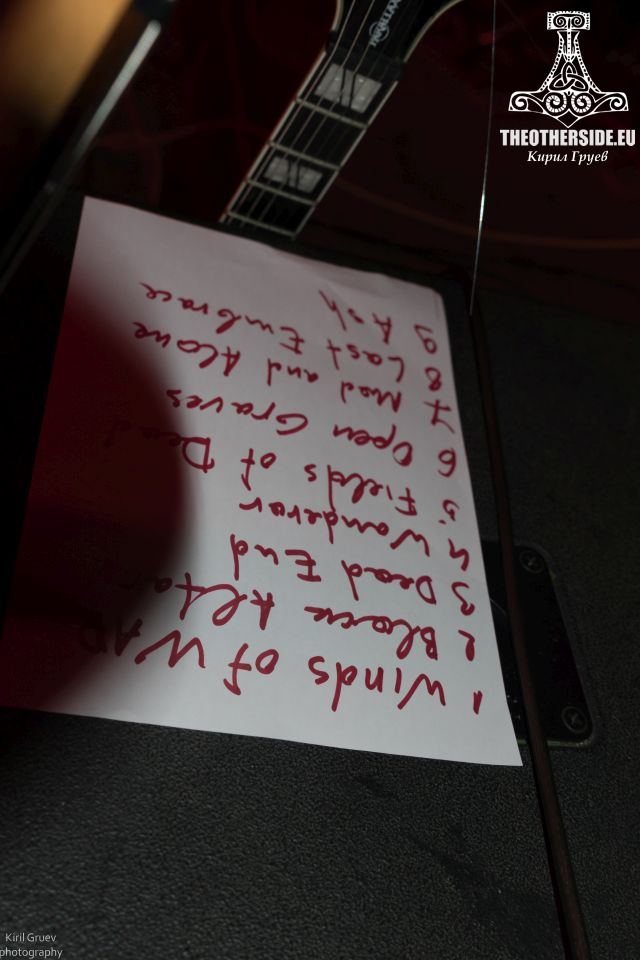 THEOTHERSIDE.EU
Кирил Груев
1 Winds of WAR
2 Black Altar
3 Dead End
4 Wanderor
5 Fields of Dead
6 Open Graves
7 Mad and Alone
8 Last Embrace
9 Ash
Kiril Gruev
photography